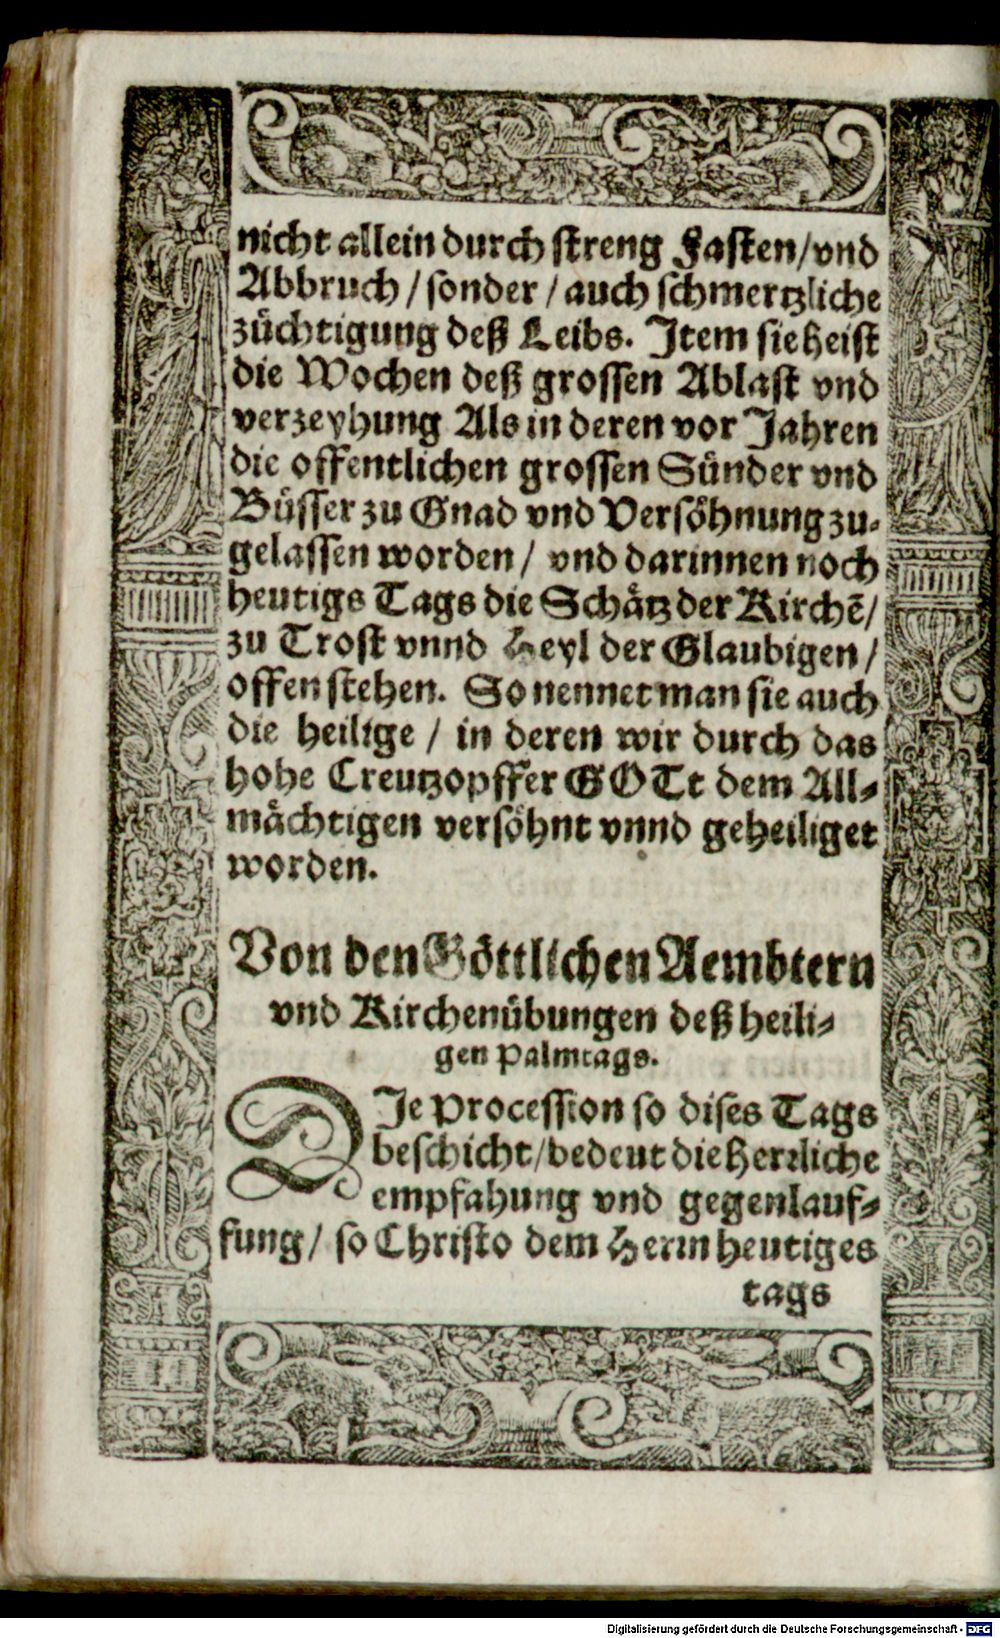 nicht allein durch streng Fasten/vnd
Abbruch / sonder / auch schmertzliche
züchtigung deß Leibs. Item sie heist
die Wochen deß grossen Ablast vnd
verzeyhung Als in deren vor Jahren
die offentlichen grossen Sünder vnd
Büsser zu Gnad vnd Versöhnung zu-
gelassen worden / vnd darinnen noch
heutigs Tags die Schätz der Kirchē/
zu Trost vnnd Heyl der Glaubigen /
offen stehen. So nennet man sie auch
die heilige / in deren wir durch das
hohe Creutzopffer GOTt dem All-
mächtigen versöhnt vnnd geheiliget
worden.
Von den Göttlichen Aembtern
vnd Kirchenübungen deß heili-
gen Palmtags.
DIe Procession so dises Tags
beschicht/bedeut die herrliche
empfahung vnd gegenlauf-
fung / so Christo dem Herrn heutiges
tags
Digitalisierung gefördert durch die Deutsche Forschungsgemeinschaft - DFG